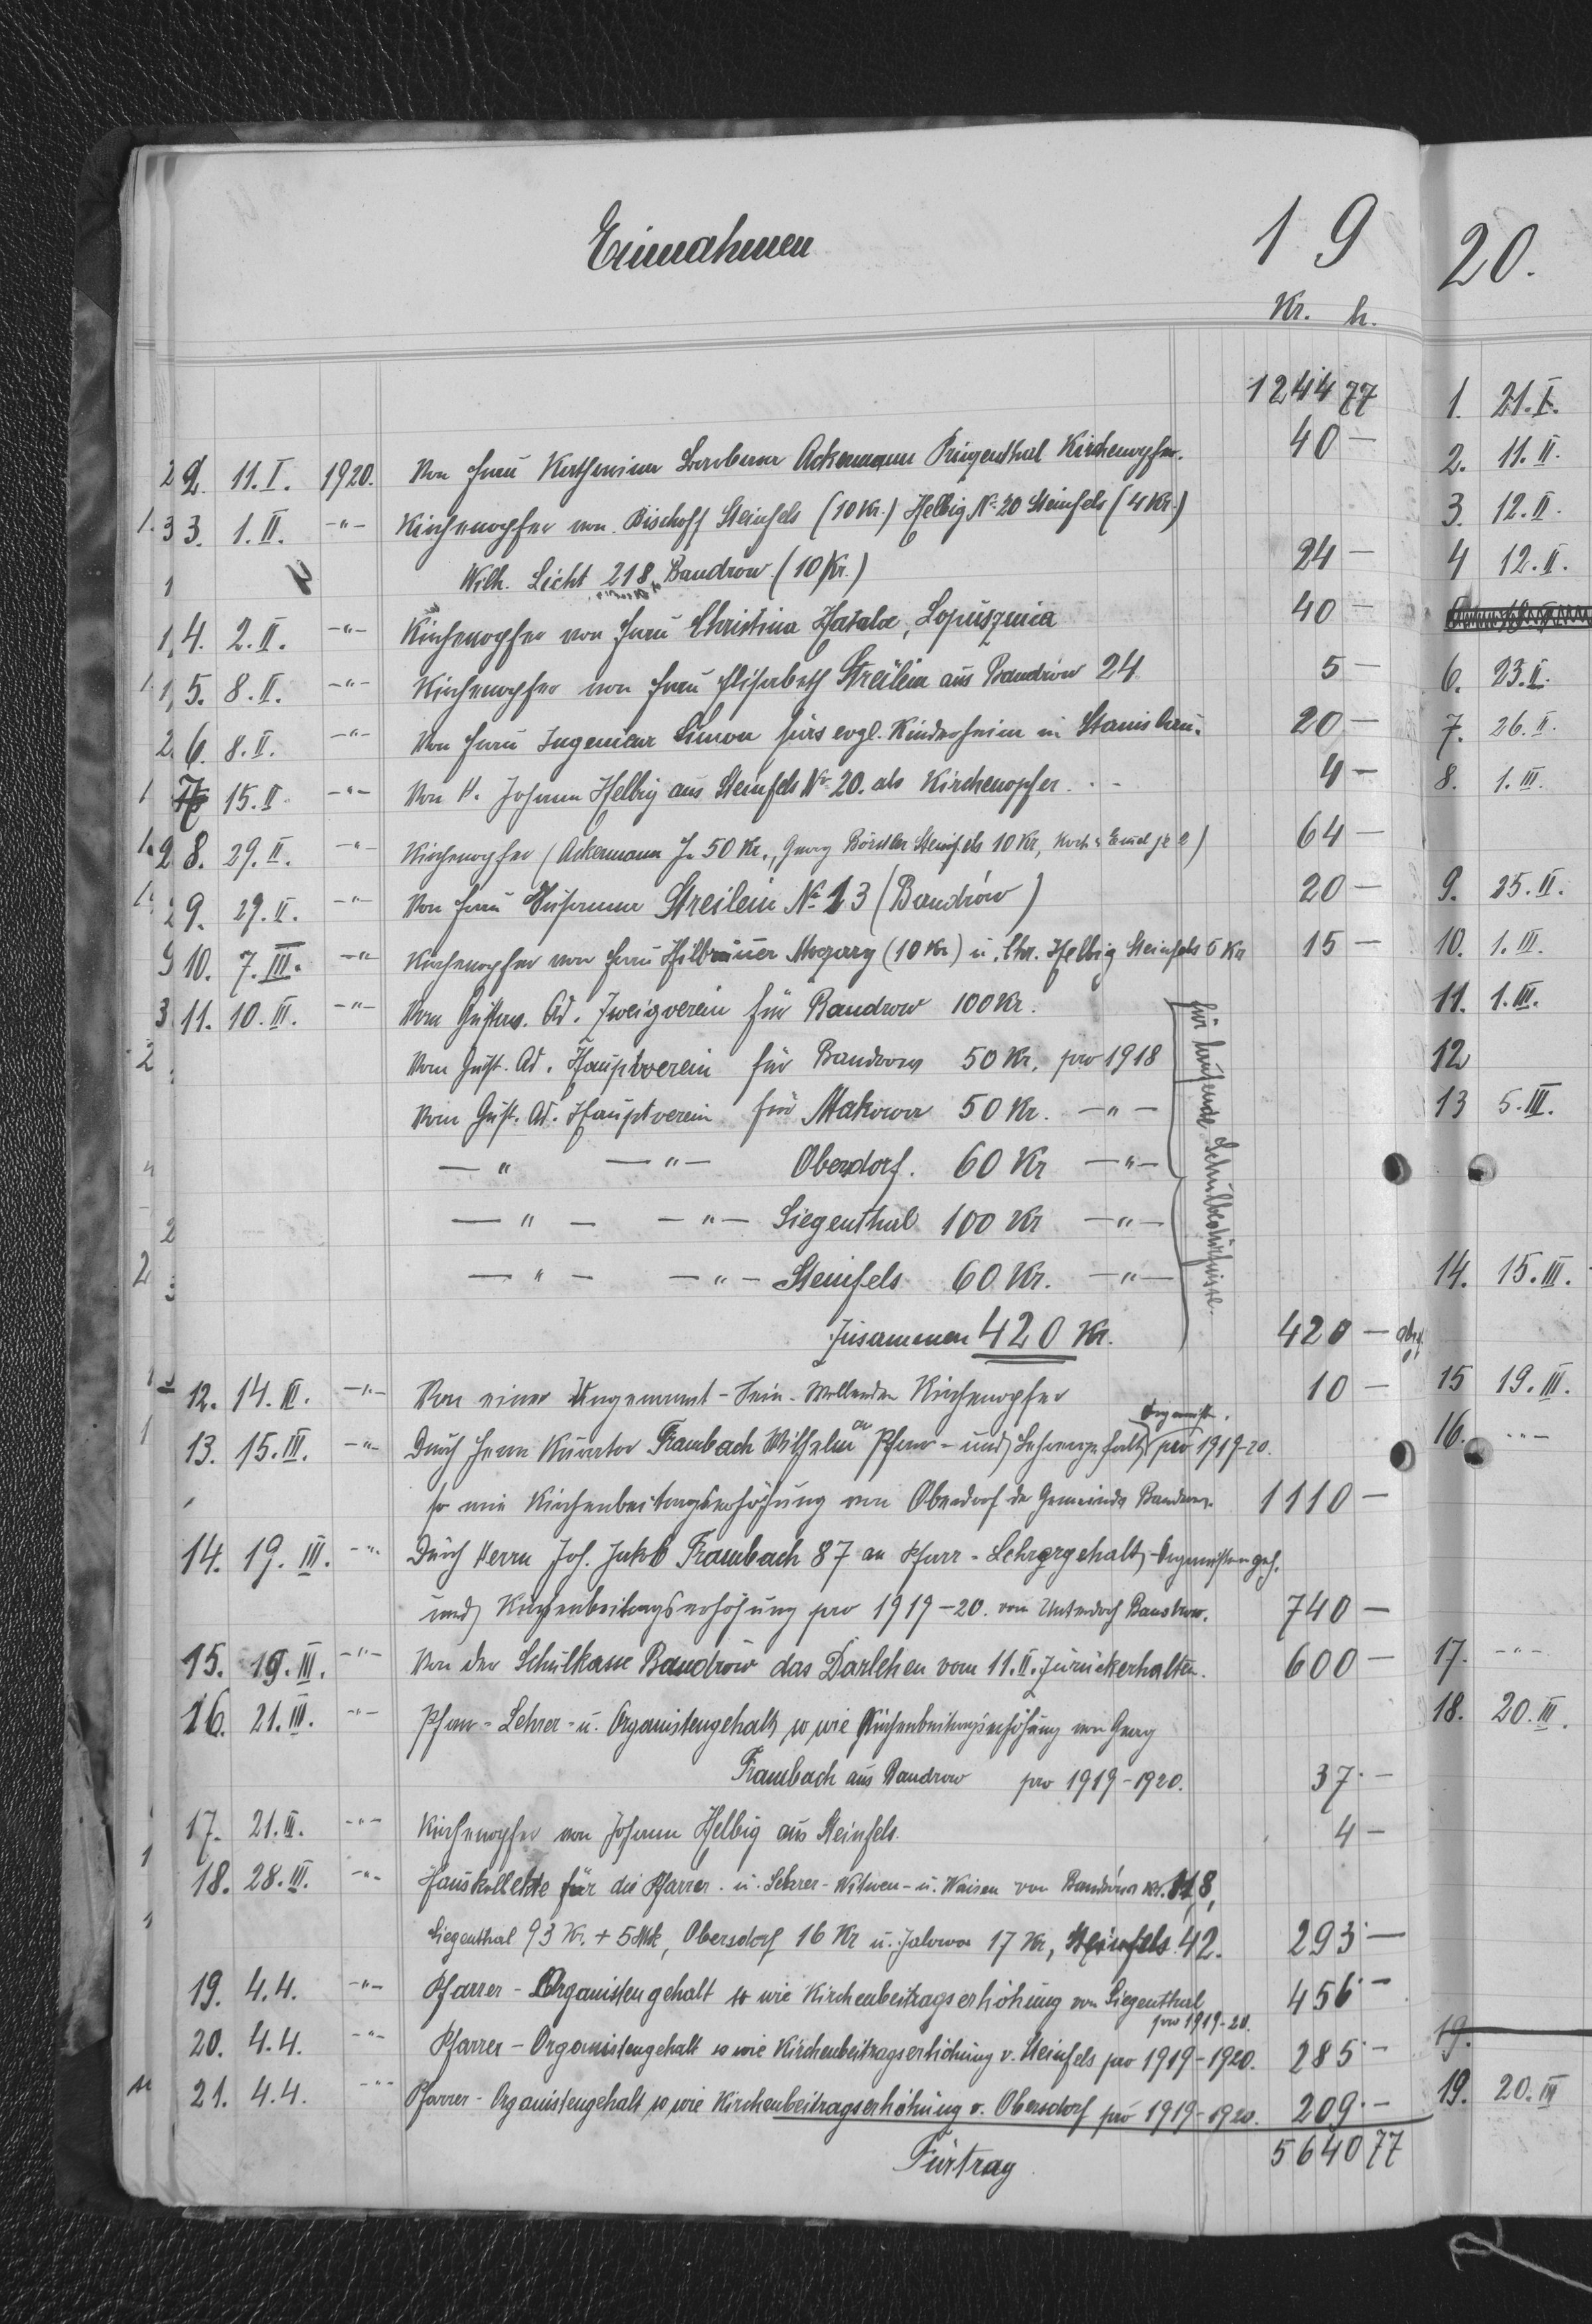 Einnahmen 19 20.
Kr. h.
1244 77
2. 11. I. 1920. Von Frau Katharina Barbara Ackermann Prinzenthal Kirchenopfer. 40 —
3. 1. II. -"- Kirchenopfer von Bischoff Steinfels (10 Kr.) Helbig No 20 Steinfels (4 Kr.)
Wilh. Licht 218 Bandrow (10 Kr.) 24 —
4. 2. II. -"- Kirchenopfer von Frau Christina Hatala, Lopusznica 40 —
5. 8. II. -"- Kirchenopfer von Frau Elisabeth Streilein aus Bandrów 24 5 —
6. 8. II. -"- Von Frau Ingenieur Simon fürs evgl. Kinderheim in Stanislau. 20 —
7. 15. II. -"- Von H. Johann Helbig aus Steinfels No 20. als Kirchenopfer 4 —
8. 29. II. -"- Kirchenopfer (Ackermann J. 50 Kr., Georg Steinfels 10 Kr, je 2) 64 —
9. 29. II. -"- Von Frau Susanna Streilein No 13 (Bandrów) 20 —
10. 7. III. -"- Kirchenopfer von Frau Hilbrauner (10 Kr) u. Chr. Helbig Steinfels 5 Kr 15 —
11. 10. III. -"- Vom Gustav. Ad. Zweigverein für Bandrow 100 Kr.
Vom Gust. Ad. Hauptverein für Bandrow 50 Kr. pro 1918
Vom Gust. Ad. Hauptverein für Makowa 50 Kr. —"—
—"— —"— Obersdorf. 60 Kr —"—
—"— —"— Siegenthal 100 Kr —"—
—"— —"— Steinfels 60 Kr. —"—
für laufende Schulbedürfnisse.
Zusammen 420 Kr. 420 —
12. 14. III. -"- Von einer Ungenannt-Sein-Wollenden Kirchenopfer 10 —
13. 15. III. -"- Durch Herrn Kurator Frambach Wilhelm an Pfarr- und Lehrergehalt Organist. pro 1919-20.
so wie Kirchenbeitragserhöhung von Oberdorf der Gemeinde Bandrow. 1110 —
14. 19. III. -"- Durch Herrn Joh. Jakob Frambach 87 an Pfarr-Lehrergehalt, Organistengeh.
und Kirchenbeitragserhöhung pro 1919-20. von Unterdorf Bandrow. 740 —
15. 19. III. -"- Von der Schulkasse Bandrów das Darlehen vom 11. II. zurückerhalten. 600 —
16. 21. III. -"- Pfarr-Lehrer- u. Organistengehalt so wie Kirchenbeitragserhöhung von Georg
Frambach aus Bandrow pro 1919-1920. 37 —
17. 21. III. -"- Kirchenopfer von Johann Helbig aus Steinfels. 4 —
18. 28. III. -"- Hauskollekte für die Pfarrer- u. Lehrer-Witwen- u. Waisen von Bandrów Kr. 118,
Siegenthal 93 Kr. + 5 Mk, Obersdorf 16 Kr u. Jalowa 17 Kr, Steinfels 42. 293 —
19. 4.4. -"- Pfarrer-Organistengehalt so wie Kirchenbeitragserhöhung von Siegenthal pro 1919-20. 456 —
20. 4.4. -"- Pfarrer-Organistengehalt so wie Kirchenbeitragserhöhung v. Steinfels pro 1919-1920. 285 —
21. 4.4. -"- Pfarrer-Organistengehalt so wie Kirchenbeitragserhöhung v. Obersdorf pro 1919-1920. 209 —
Fürtrag 5640 77
1. 21. I.
2. 11. II.
3. 12. II.
4 12. II.
6. 23. II.
7. 26. II.
8. 1. III.
9. 25. II.
10. 1. III.
11. 1. III.
12
13 5. III.
14. 15. III.
15 19. III.
16. -"-
17. -"-
18. 20. III.
19.
19. 20. III